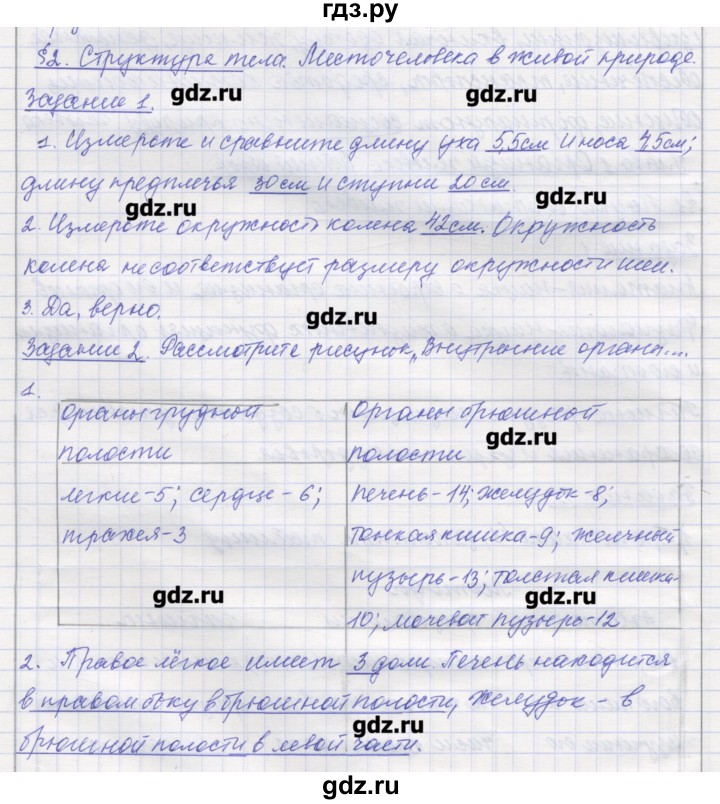 гдз.ру
§2. Структура тела. Место человека в живой природе.
Задание 1.
gdz.ru gdz.ru
1. Измерьте и сравните длину уха 5,5см и носа 4,5см;
длину предплечья 30см и ступни 20см.
gdz.ru gdz.ru
2. Измерьте окружность колена 42см. Окружность
колена не соответствует размеру окружности шеи.
3. Да, верно.
gdz.ru
Задание 2. Рассмотрите рисунок „Внутренние органы...
1.
органы грудной полости
Органы брюшной полости
gdz.ru
легкие-5; сердце - 6;
трахея-3
печень-14; желудок-8;
тонкая кишка-9; желчный
пузырь-13; толстая кишка-
10; мочевой пузырь-12
gdz.ru gdz.ru
2. Правое лёгкое имеет 3 доли. Печень находится
в правом боку в брюшной полости, желудок - в
брюшной полости в левой части.
gdz.ru